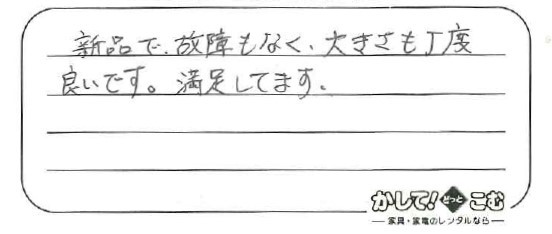 新品で、故障もなく、大きさも丁度
良いです。満足してます。
かして!どっとこむ
家具・家電のレンタルなら